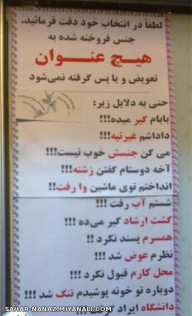 لطفاً در انتخاب خود دقت فرمائید.
جنس فروخته شده به
هیچ عنوان
تعویض و یا پس گرفته نمی‌شود
حتی به دلایل زیر:
بابام گیر میده!!!
داداشم غیرتیه!!!
می گن جنسش خوب نیست!!!
آخه دوستام گفتن زشته!!!
انداختم توی ماشین وا رفت!!
شستم آب رفت !!!
گشت ارشاد گیر می ده !!!
همسرم پسند نکرد !!
نظرم عوض شد !!!
محل کارم قبول نکرد !!!
دوباره تو خونه پوشیدم تنگ شد !!!
دانشگاه ایراد گرفت
SAHAR-NANAZ.MIYANALI.COM